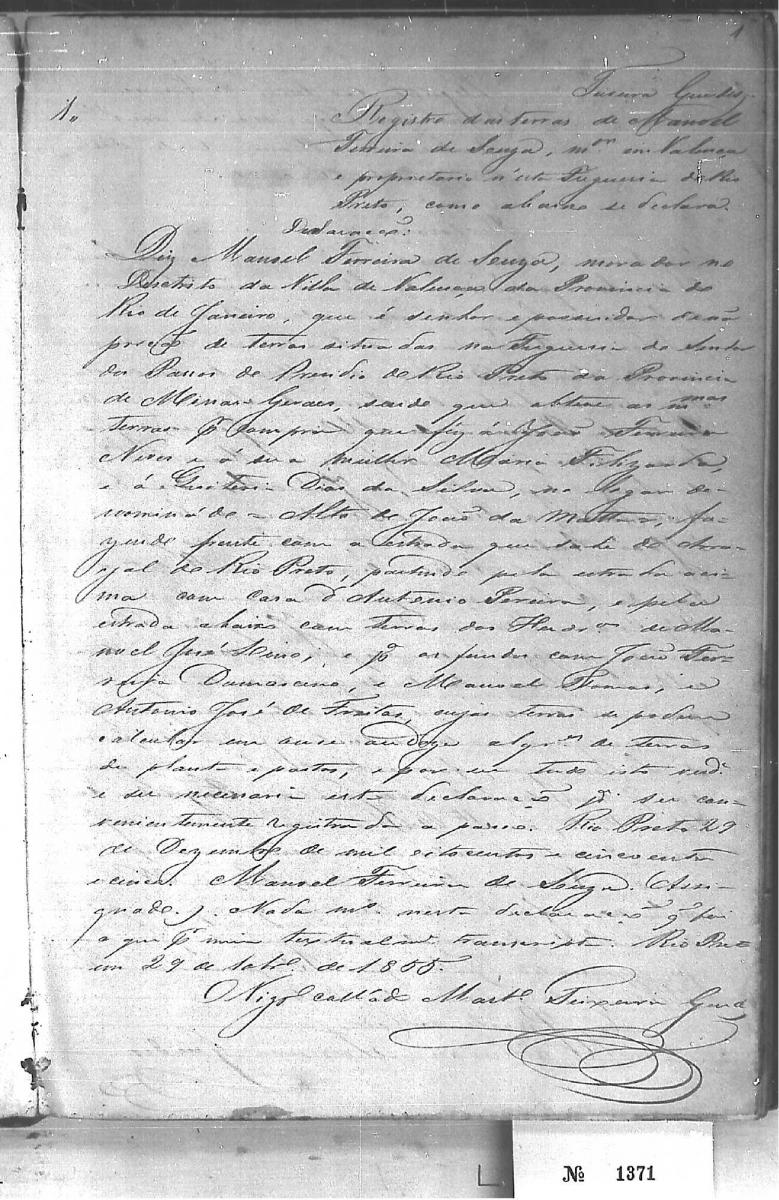 1
Teixeira Guedes
1.
Registro das terras de Manoel
Ferreira de Souza, m.or em Valença
e proprietario n'esta Freguesia do Rio
Preto, como abaixo se declara.
Declaração:
Diz Manoel Ferreira de Souza, morador no
Destrito da Villa de Valença, da Provincia do
Rio de Janeiro, que é senhor e possuidor de
de terras situadas na Freguesia do Senhor
dos Passos do Presidio do Rio Preto da Provincia
de Minas Geraes, sendo que obteve as m.mas
terras p.r compra que fez á João Ferreira
Neves e á sua mulher Maria
e á Quiteria Dias da Silva, no lugar de-
nominado = Alto de João da Matta =, fa-
zendo frente com a estrada que sahe do Arra-
ial do Rio Preto, partindo pela estrada aci-
ma com casa d'Antonio Pereira, e pela
estrada abaixo com terras dos Herdr.os de Ma-
noel José, e p.r os fundos com João Fer-
reira Damasceno, e Manoel Thomas, e
Antonio José de Freitas, cujas terras se podem
calcular em onze ou doze alqr.es de terras
de planta e pastos, e por ser tudo isto verd.e
e ser necessaria esta declaração p.a ser con-
venientemente registrada a passo. Rio Preto 29
de Dezembro de mil oitocentos e cincoenta
e cinco. Manoel Ferreira de Souza. (Assi-
gnado.). Nada m.s nesta declaração q' foi
o que p.r mim textualm.e transcripta. Rio Preto
em 29 de de 1855.
O Vigr.o Mart.s Teixeira Gued.s
Nº 1371